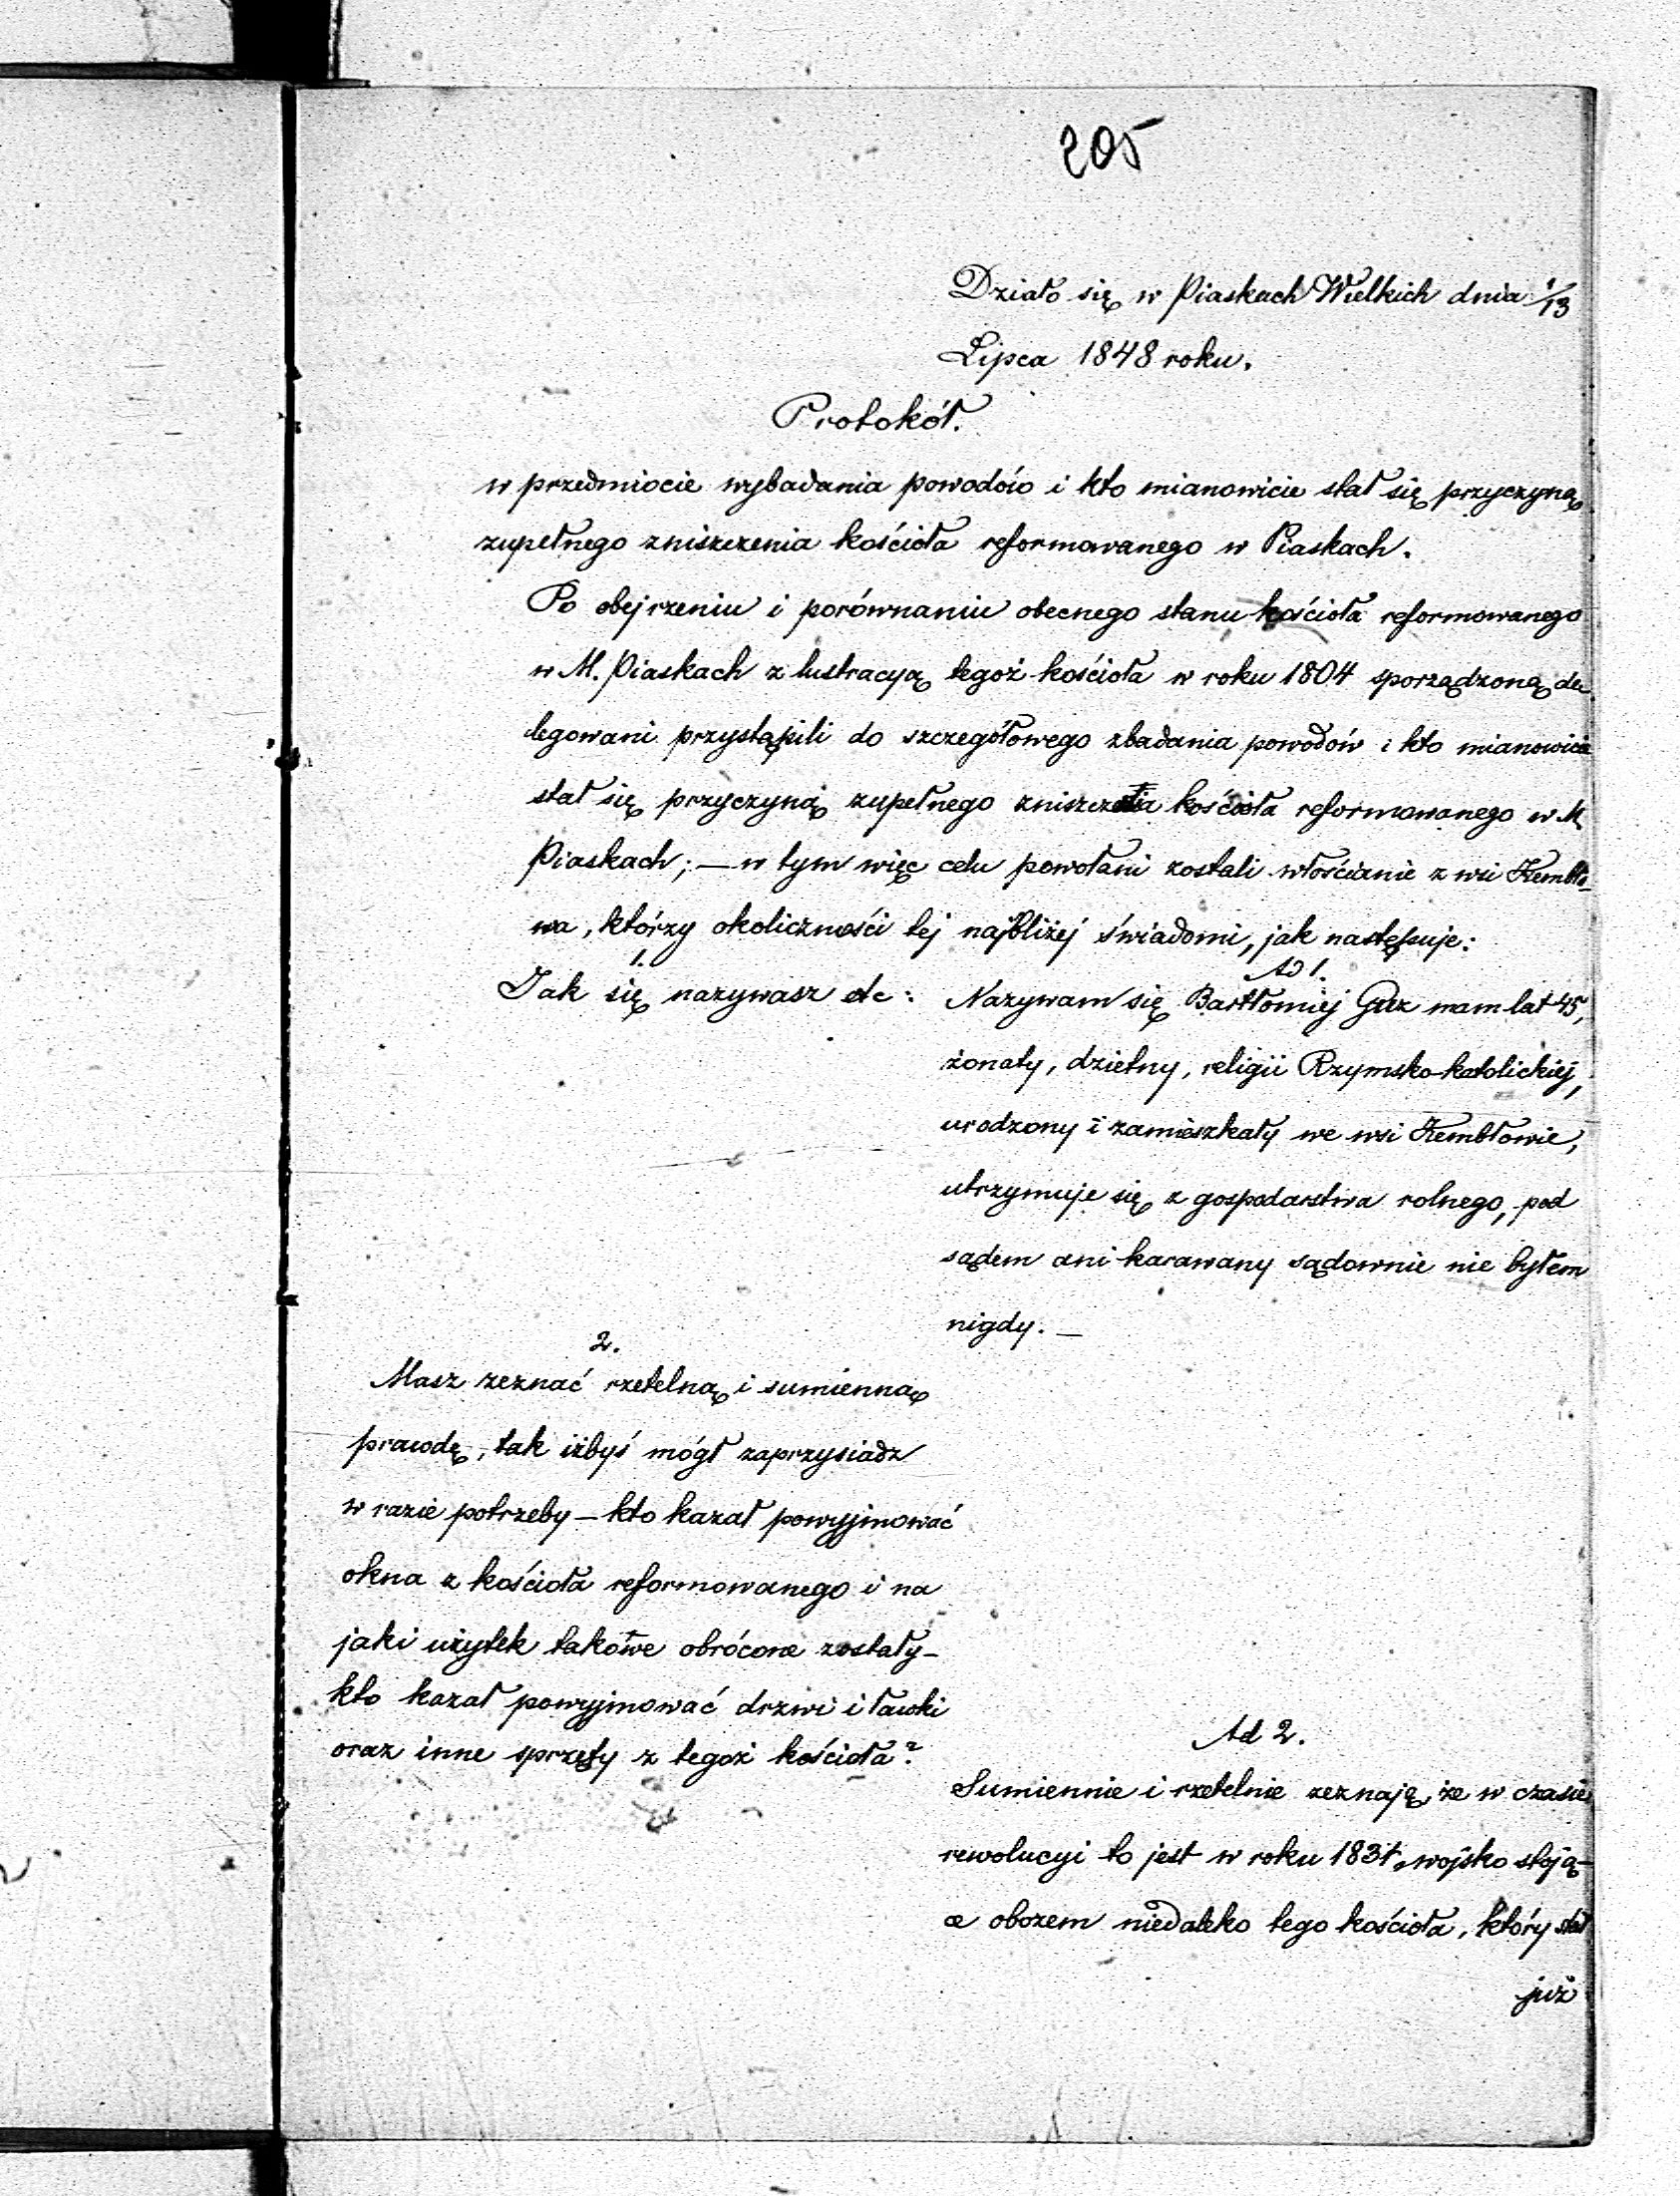 205
Działo się w Piaskach Wielkich dnia 1/13
Lipca 1848 roku.
Protokół.
w przedmiocie wybadania powodów i kto mianowicie stał się przyczyną
zupełnego zniszczenia kościoła reformowanego w Piaskach.
Po obejrzeniu i porównaniu obecnego stanu kościoła reformowanego
w M. Piaskach z lustracyą tegoż kościoła w roku 1804 sporządzoną de
legowani przystąpili do szczegółowego zbadania powodów i kto mianowicie
stał się przyczyną zupełnego kościoła reformowanego w M.
Piaskach; — w tym więc celu powołani zostali włościanie z wsi Kembło-
wa, którzy okoliczności tej najbliżej świadomi, jak następuje:
1.
Jak się nazywasz etc:
Ad 1.
Nazywam się Bartłomiej Guz mam lat 45,
żonaty, dzietny, religii Rzymsko-katolickiej,
urodzony i zamieszkały we wsi Kembłowie,
utrzymuje się z gospodarstwa rolnego, pod
sądem ani karawany sądownie nie byłem
nigdy. —
2.
Masz zeznać rzetelną i sumienną
prawdę, tak iżbyś mógł zaprzysiądz
w razie potrzeby — kto kazał powyjmować
okna z kościoła reformowanego i na
jaki użytek takowe obrócone zostały —
kto kazał powyjmować drzwi i ławki
oraz inne sprzęty z tegoż kościoła?
Ad 2.
Sumiennie i rzetelnie zeznaję, że w czasie
rewolucyi to jest w roku 1831, wojsko stoją-
ce obozem niedaleko tego kościoła, który stał
już